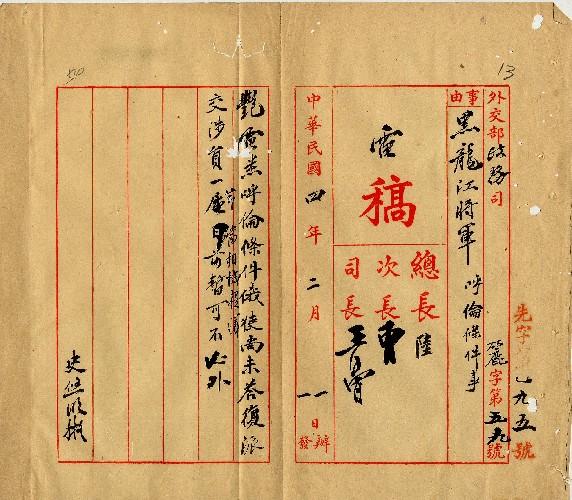 13
先字
九五號
外交部政務司
麗字第五九號
事由
黑龍江將軍 呼倫條件事
電
稿
總長 陸
次長 曹
司長
中華民國四年二月一日辦發
艷電悉呼倫條件俄使尚未答復派
交涉員一層目前暫可不必外